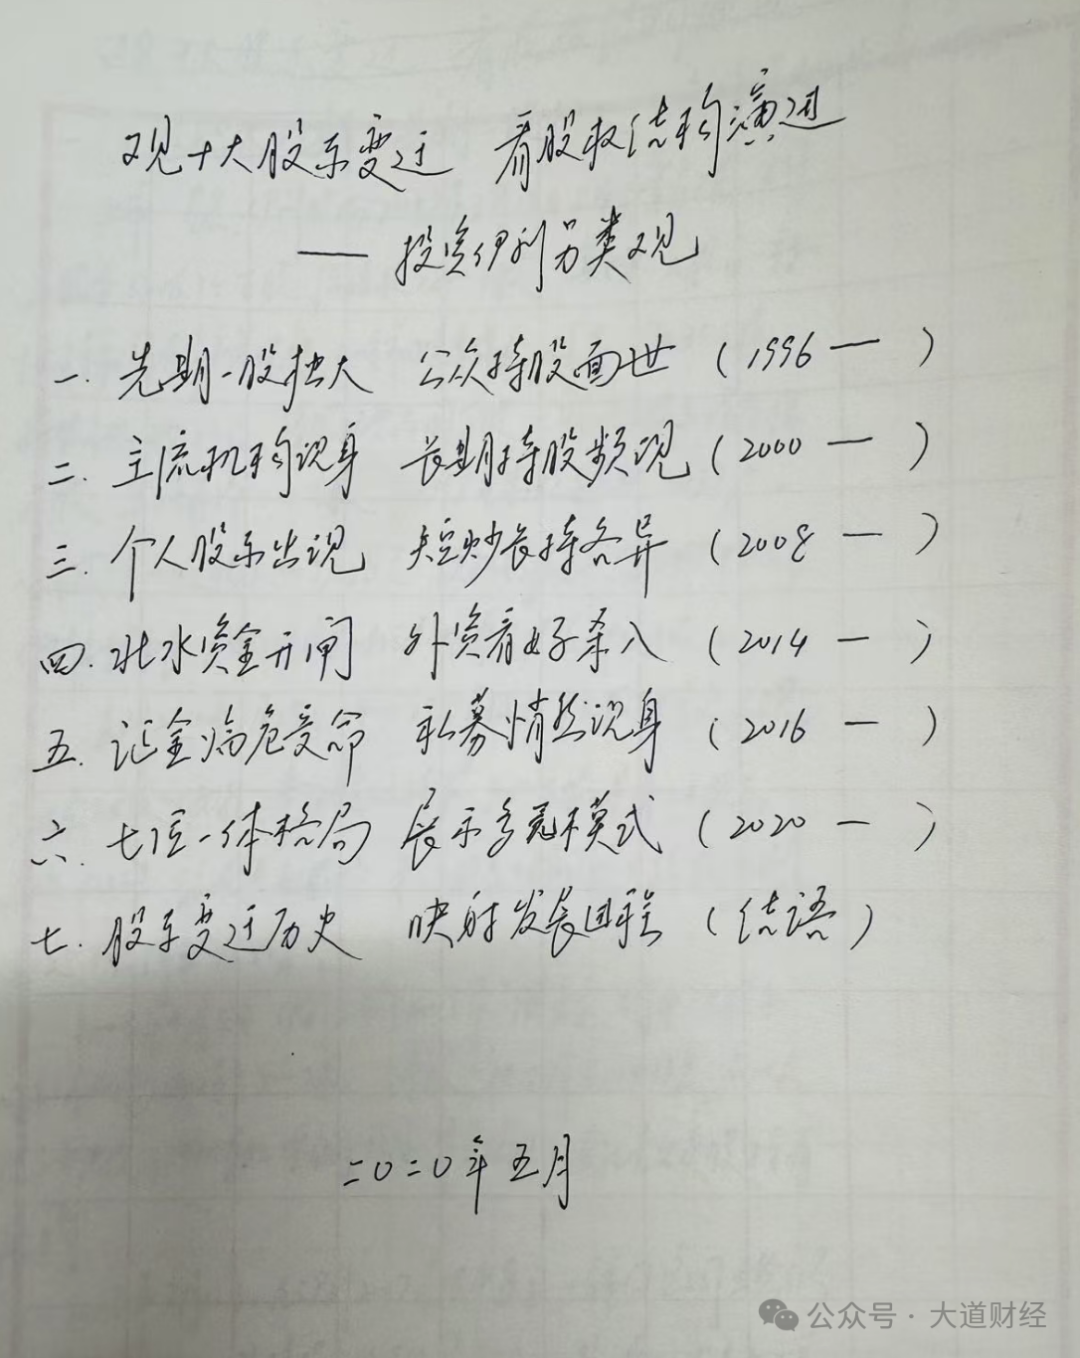 观十大股东变迁 看股权结构演进
—— 投资伊利另类观
一. 先期一股独大 公众持股面世 (1996 — )
二. 主流机构现身 长期持股频现 (2000 — )
三. 个人股东出现 短炒长持各异 (2008 — )
四. 北水资金开闸 外资看好杀入 (2014 — )
五. 证金临危受命 私募悄然现身 (2016 — )
六. 七位一体格局 展示多元模式 (2020 — )
七. 股东变迁历史 映射发展 (结语)
二0二0年五月
公众号·大道财经